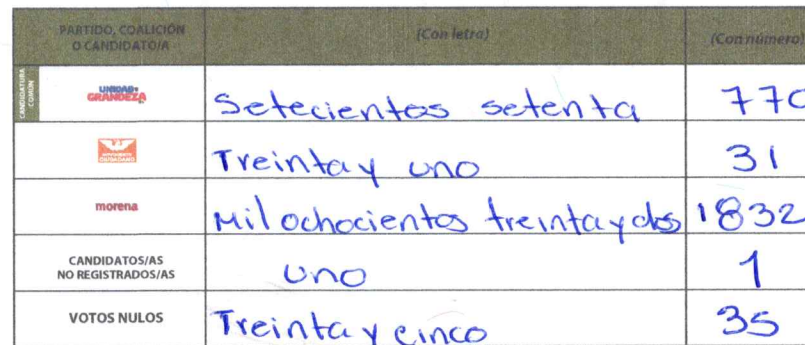 PARTIDO, COALICIÓN (Con letra) (Con número)
O CANDIDATO/A
CANDIDATURA COMÚN UNIDAD Y GRANDEZA Setecientos setenta 770
MOVIMIENTO CIUDADANO Treinta y uno 31
morena Mil ochocientos treinta y dos 1832
CANDIDATOS/AS
NO REGISTRADOS/AS uno 1
VOTOS NULOS Treinta y cinco 35